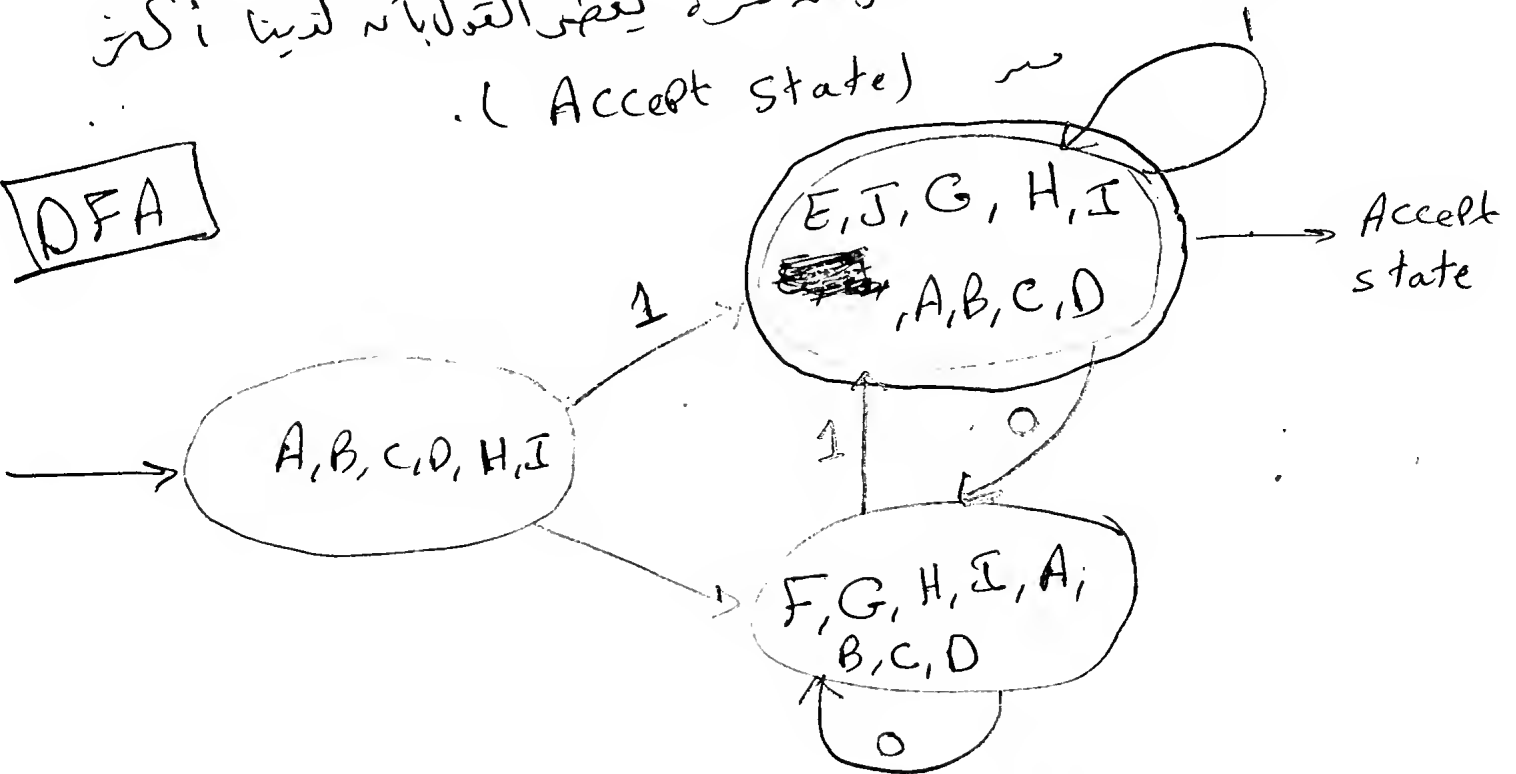 يعني القول بأنه لدينا أكثر
من (Accept state).
DFA
1
E, J, G, H, I
, A, B, C, D
Accept
state
1
A, B, C, D, H, I
1
0
F, G, H, I, A,
B, C, D
0